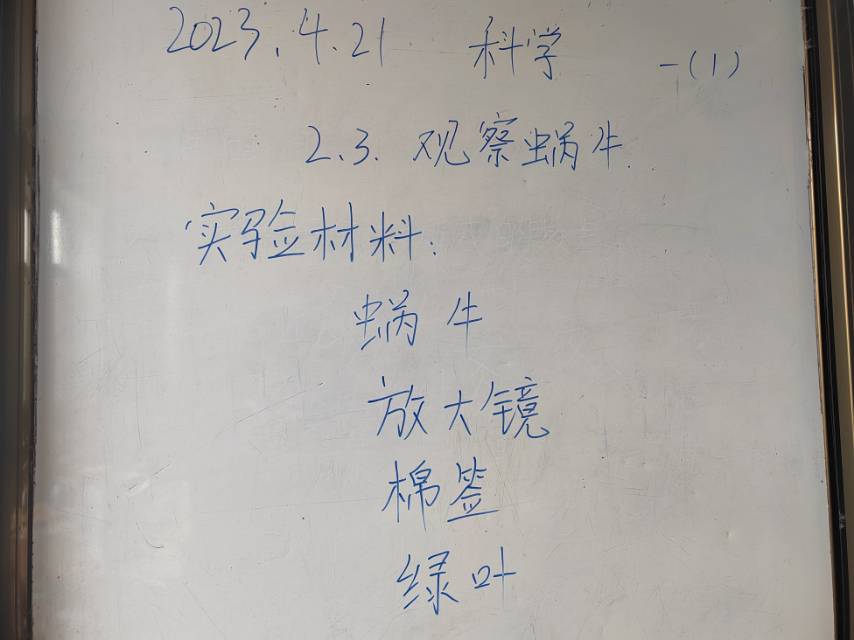 2023.4.21 科学 一(1)
2.3. 观察蜗牛.
实验材料:
蜗牛
放大镜
棉签
绿叶